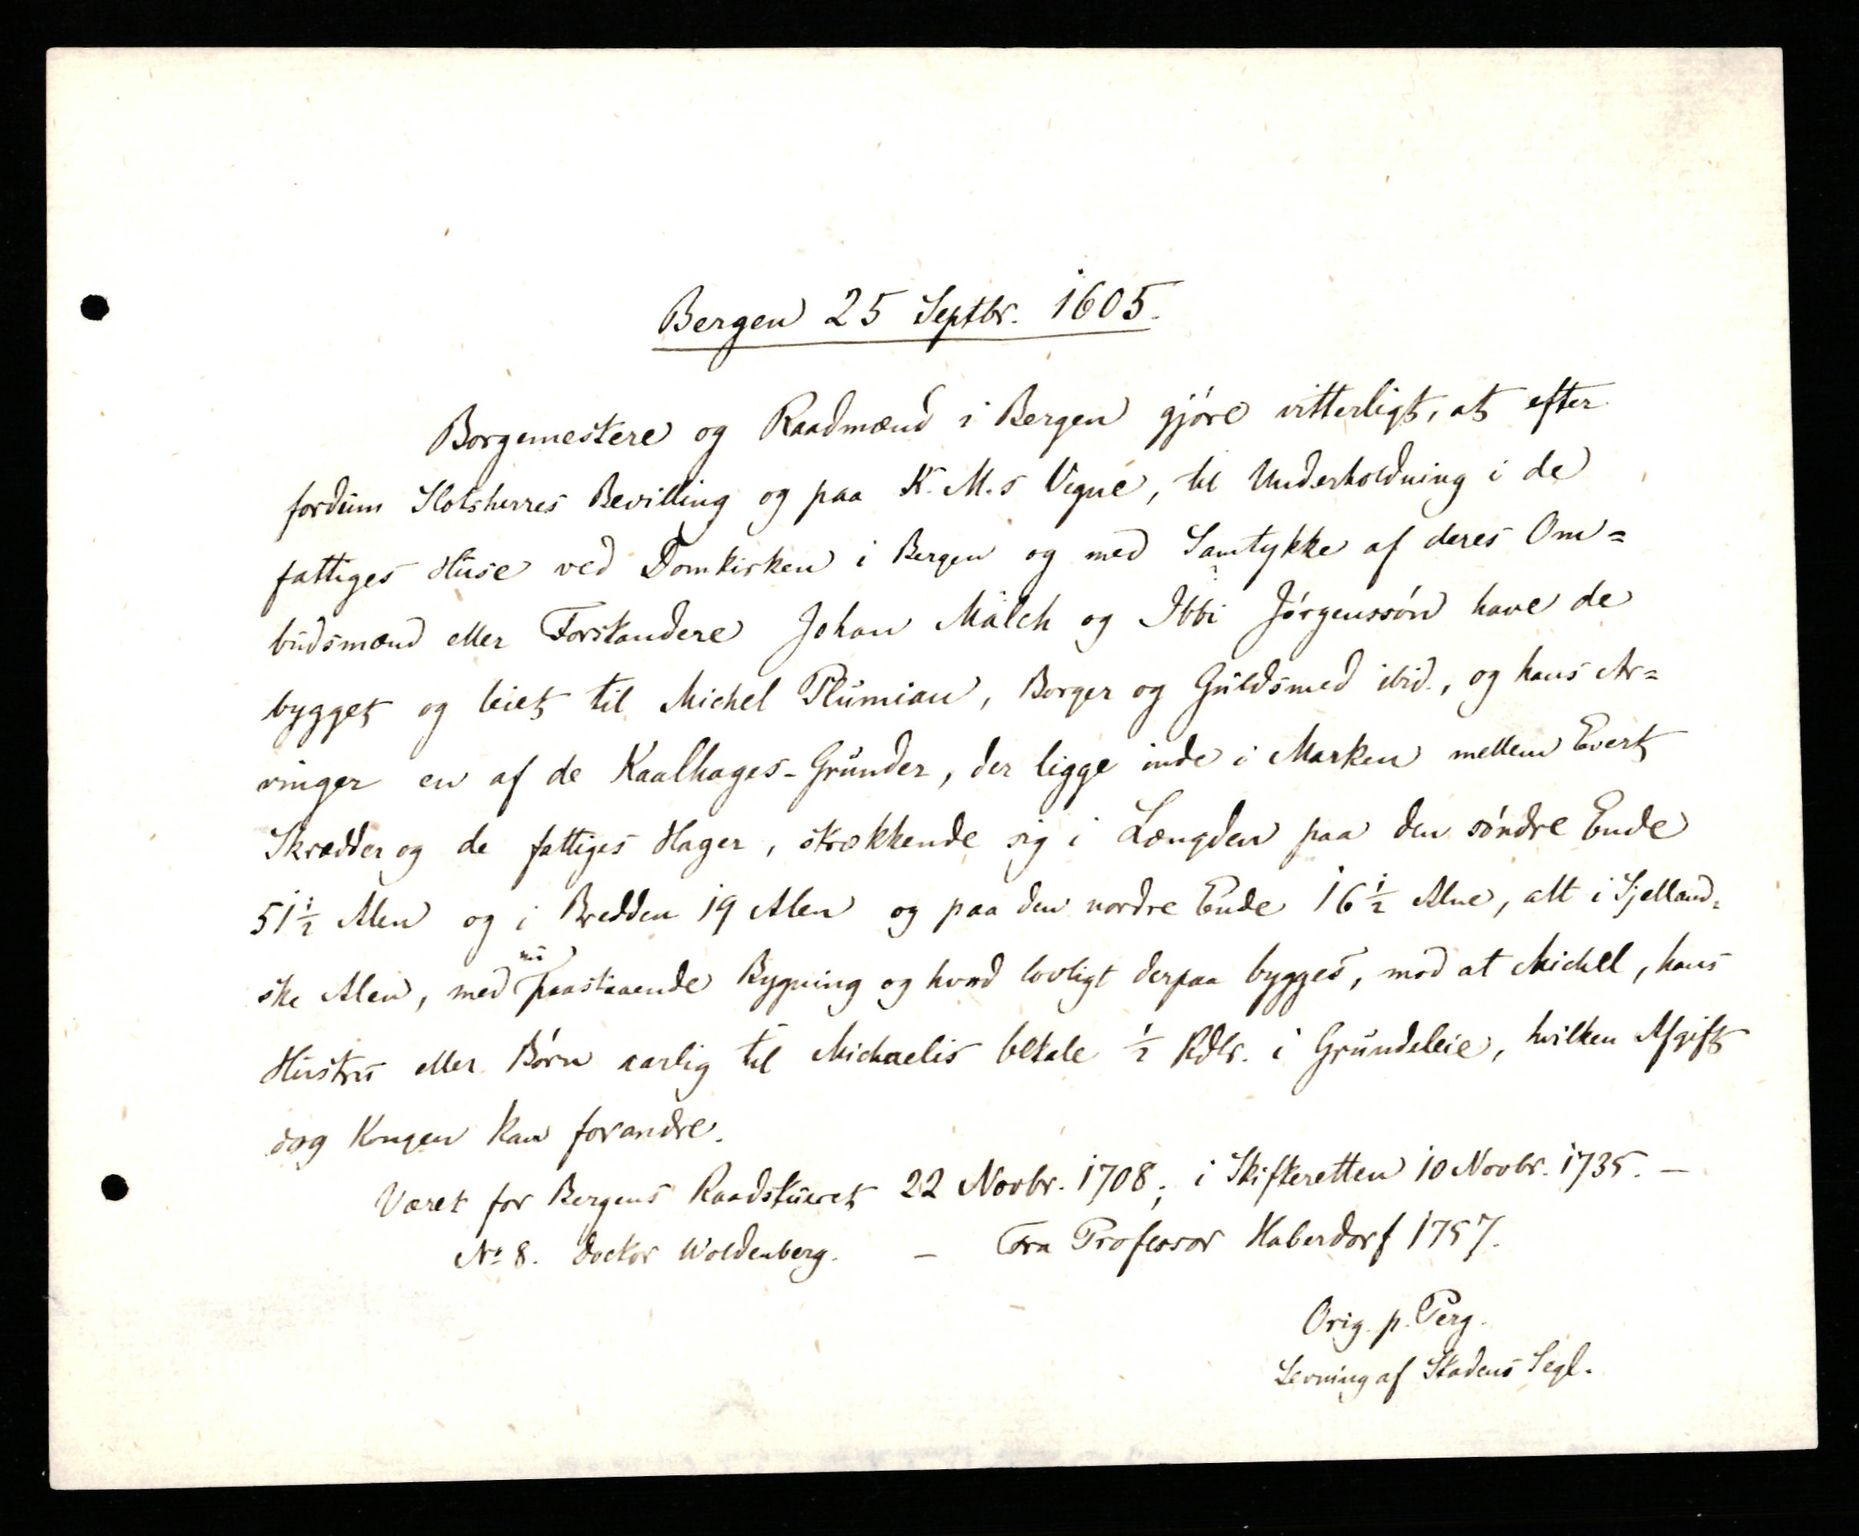 Bergen 25 Septbr. 1605.
Borgemestere og Raadmænd i Bergen gjöre vitterligt, at efter
fordum Slotsherres Bevilling og paa K. M.s Vegne, til Underholdning i de
fattiges Huse ved Domkirken i Bergen og med Samtykke af deres Om=
budsmænd eller Forstandere Johan Mülch og Ibbi Jörgenssön have de
bygget og leiet til Michel Plumian, Borger og Guldsmed ibid., og hans Ar=
vinger en af de Kaalhages-Grunder, der ligge inde i Marken mellem Evert
Skrædder og de fattiges Hager, strækkende sig i Længden paa den söndre Ende
51 ½ Alen og i Bredden 19 Alen og paa den nordre Ende 16 ½ Alne, alt i Sjelland=
ske Alen, med nu paastaaende Bygning og hvad lovligt derpaa bygges, mod at Michel, hans
Hustru eller Börn aarlig til Michaelis betale ½ Rdlr. i Grundeleie, hvilken Afgift
dog Kongen kan forandre.
Været for Bergens Raadstueret 22 Novbr. 1708; i Skifteretten 10 Novbr. 1735. —
No 8. Doctor Woldenberg. — Fra Professor Haberdorf 1757.
Orig. p. Perg.
Levning af Stadens Segl.